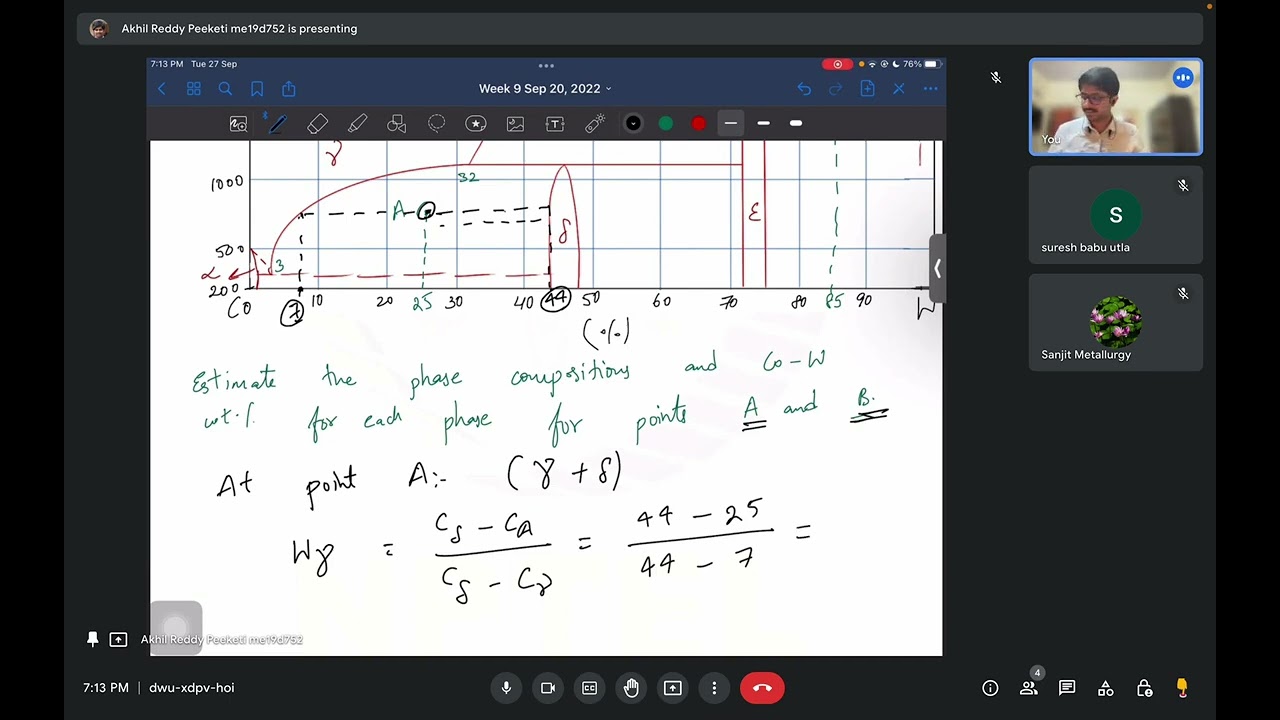 Akhil Reddy Peeketi me19d752 is presenting
7:13 PM Tue 27 Sep
76%
Week 9 Sep 20, 2022
You
S
suresh babu utla
Sanjit Metallurgy
γ
1000
32
A
δ
ε
500
α
3
200
Co
7
10
20
25
30
40
44
50
60
70
80
85
90
W
(%)
Estimate the phase compositions and Co-W
wt.% for each phase for points A and B.
At point A:- (γ + δ)
Wγ = Cδ - CA / Cδ - Cγ = 44 - 25 / 44 - 7 =
Akhil Reddy Peeketi me19d752
7:13 PM | dwu-xdpv-hoi
4